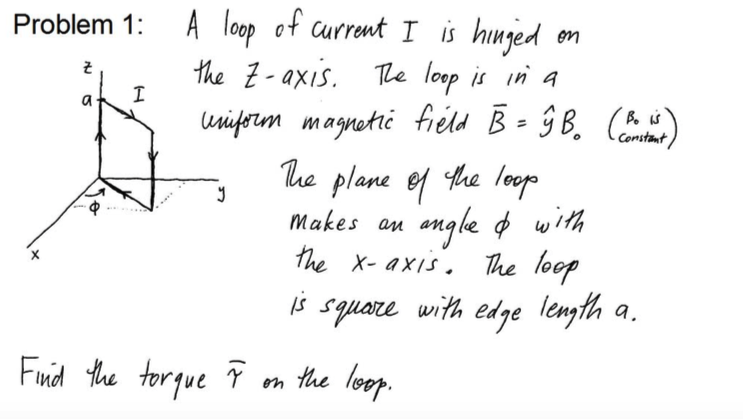 Problem 1: A loop of current I is hinged on
the Z-axis. The loop is in a
uniform magnetic field B̄ = ŷ B₀ (B₀ is constant)
The plane of the loop
makes an angle ϕ with
the x-axis. The loop
is square with edge length a.
z
a
I
y
ϕ
x
Find the torque τ̄ on the loop.